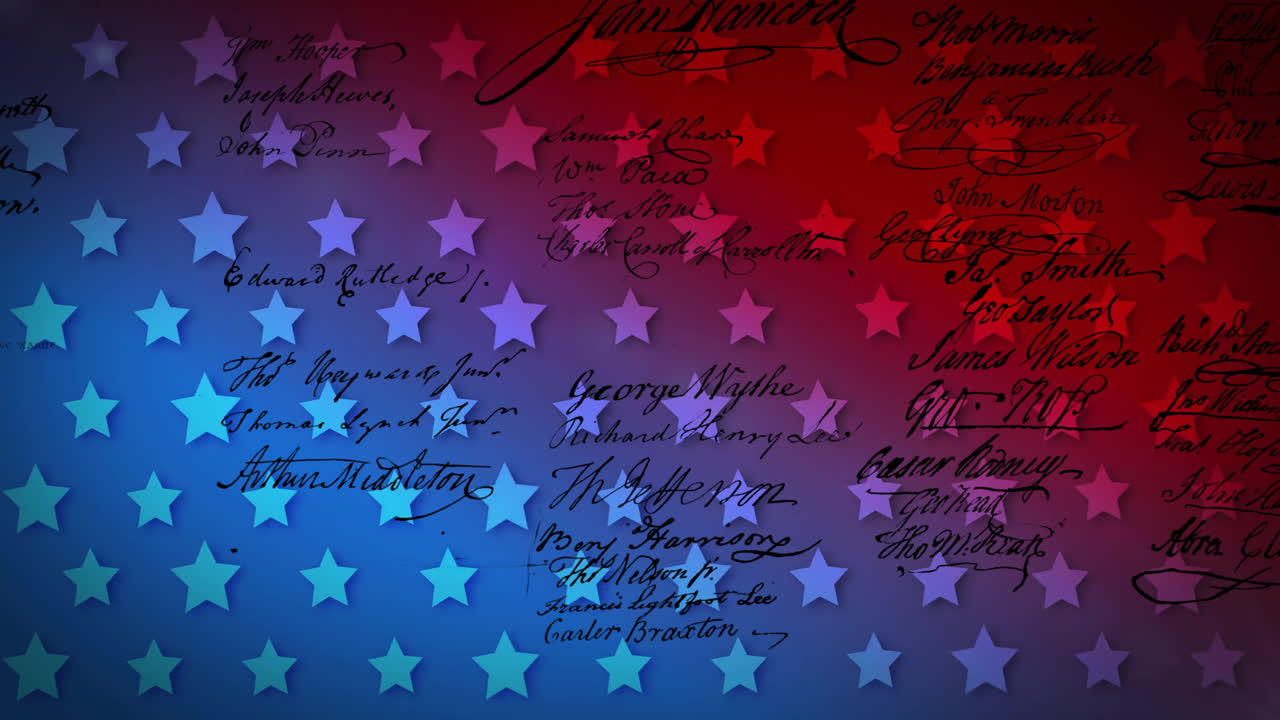 Wm Hooper
Joseph Hewes,
John Penn
Edward Rutledge /.
Thos Heyward Junr.
Thomas Lynch Junr.
Arthur Middleton
John Hancock
Samuel Chase
Wm Paca
Thos Stone
Charles Carroll of Carrollton
George Wythe
Richard Henry Lee
Th Jefferson
Benja Harrison
Thos Nelson jr.
Francis Lightfoot Lee
Carter Braxton
Robt Morris
Benjamin Rush
Benja Franklin
John Morton
Geo Clymer
Jas. Smith
Geo Taylor
James Wilson
Geo. Ross
Caesar Rodney
Geo Read
Tho M:Kean
Lewis
Richd Stoc
Jno Wither
Fras. Hop
John
Abra Cl